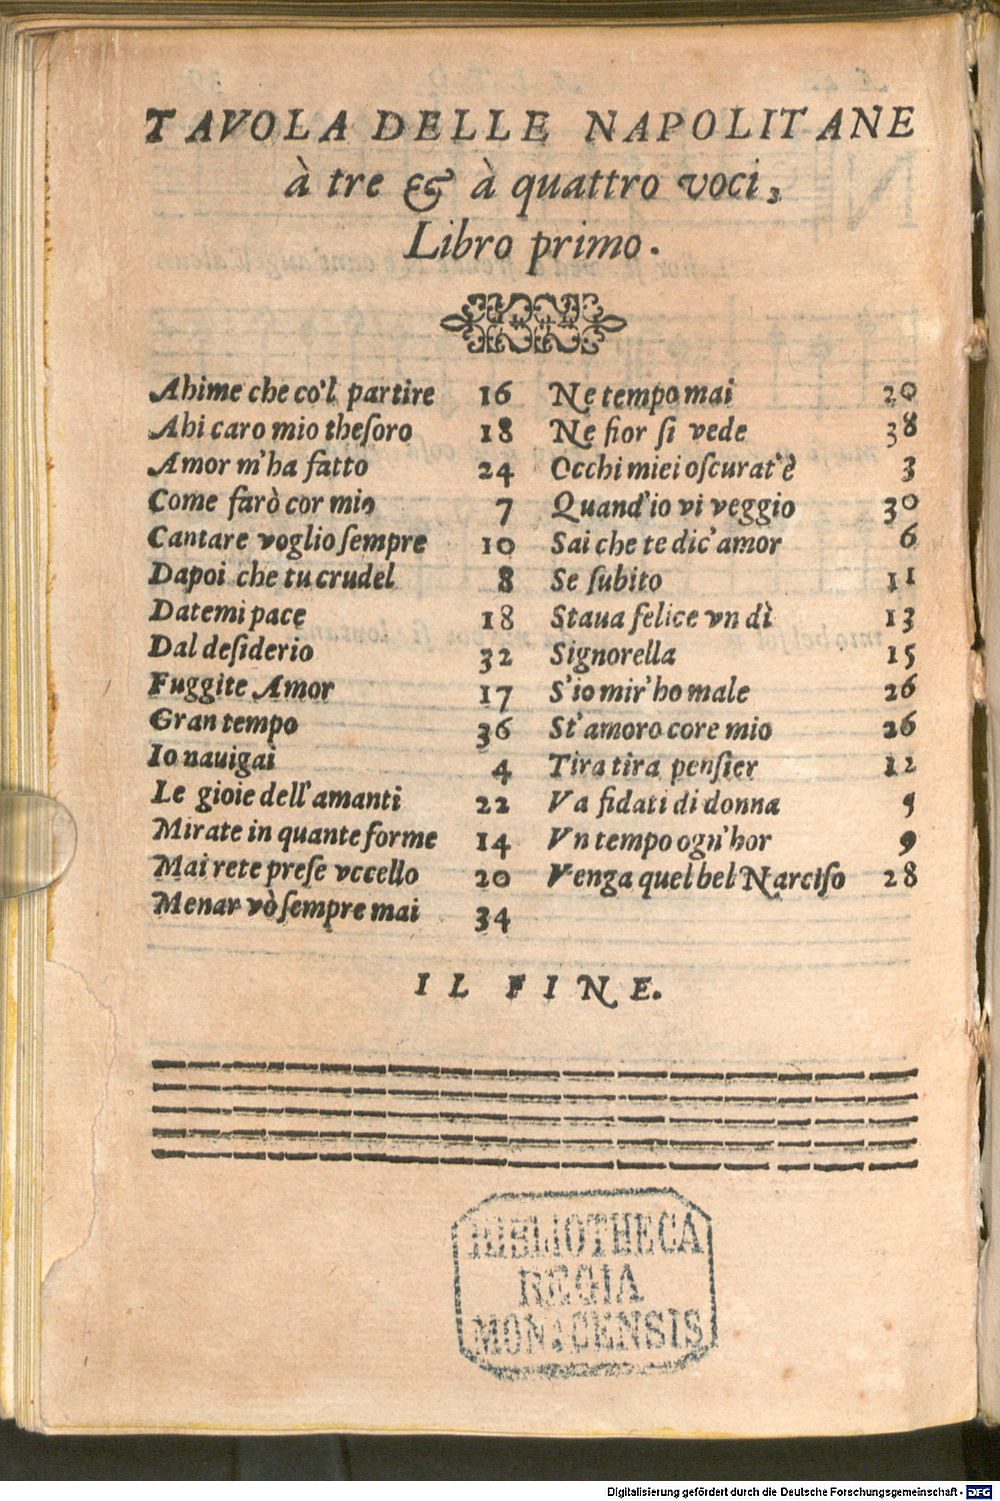 TAVOLA DELLE NAPOLITANE
à tre & à quattro voci,
Libro primo.
Ahime che co'l partire 16
Ahi caro mio thesoro 18
Amor m'ha fatto 24
Come farò cor mio 7
Cantare voglio sempre 10
Dapoi che tu crudel 8
Datemi pace 18
Dal desiderio 32
Fuggite Amor 17
Gran tempo 36
Io nauigai 4
Le gioie dell'amanti 22
Mirate in quante forme 14
Mai rete prese vccello 20
Menar vò sempre mai 34
Ne tempo mai 20
Ne fior si vede 38
Occhi miei oscurat'è 3
Quand'io vi veggio 30
Sai che te dic'amor 6
Se subito 11
Staua felice vn dì 13
Signorella 15
S'io mir'ho male 26
St'amoro core mio 26
Tira tira pensier 12
Va fidati di donna 5
Vn tempo ogn'hor 9
Venga quel bel Narciso 28
IL FINE.
BIBLIOTHECA
REGIA
MONACENSIS
Digitalisierung gefördert durch die Deutsche Forschungsgemeinschaft - DFG